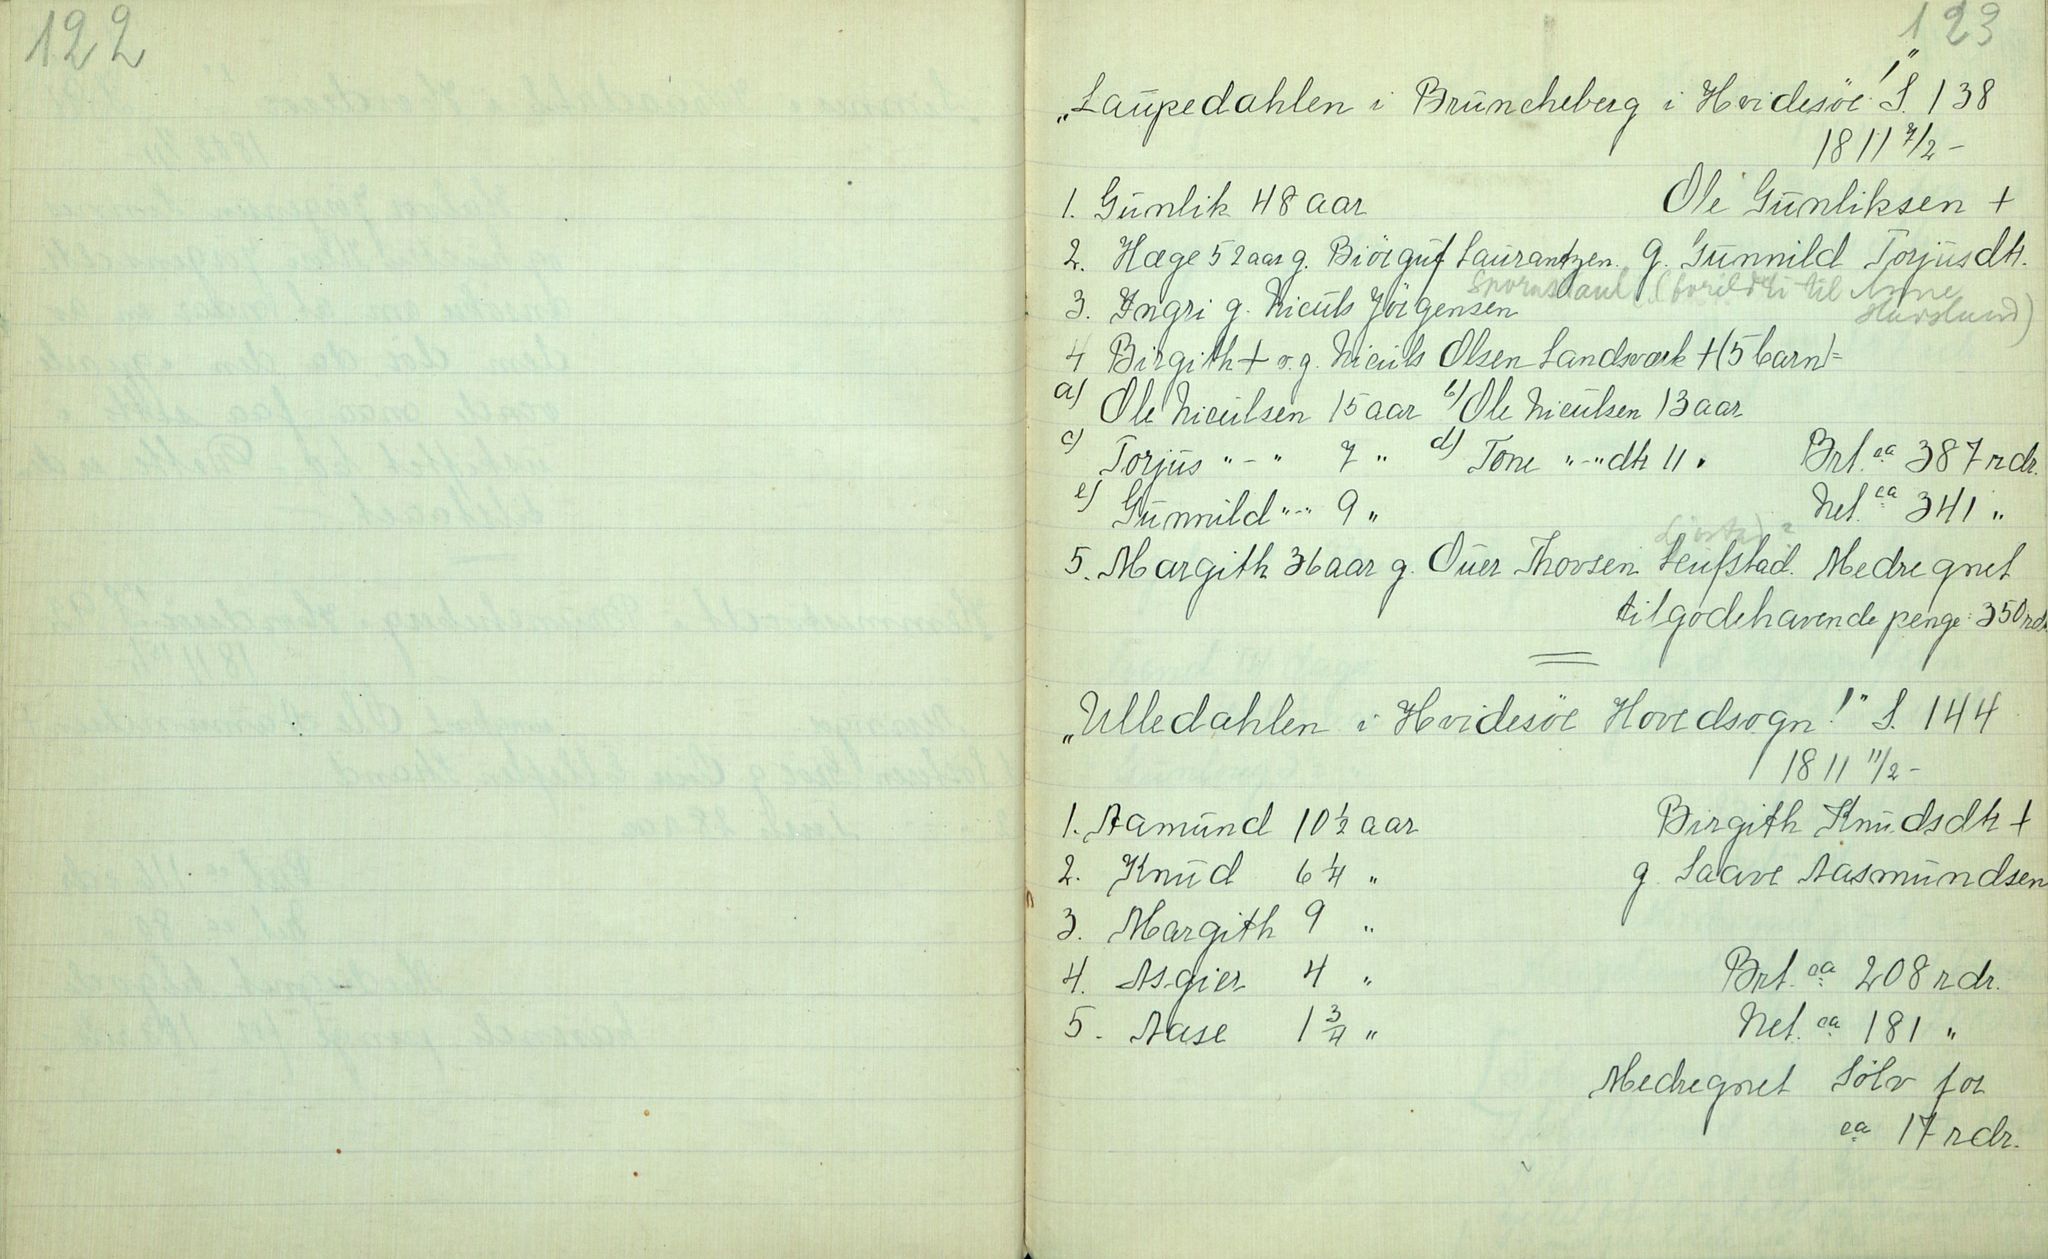 122
123
„Laupedahlen i Brüncheberg i Hvidesöe!" S. 138
1811 7/2 –
1. Gunlik 48 aar Ole Gunliksen +
2. Hæge 52 aar g. Biörguf Laurantzen. g. Gunnild Torjusdtr.
3. Ingri g. Niculs Jörgensen
4 Birgith + v. g. Niculs Olsen Landsværk + (5 barn) =
a) Ole Niculsen 15 aar b) Ole Niculsen 13 aar
c) Torjus „ – „ 7 „ d) Tone „ – „ dtr 11 „ Brt. ca 387 rdr.
e) Gunnild „ – „ 9 „ Net. ca 341 „
5. Margith 36 aar g. Ouer Thovsen Leifstad. Medregnet
tilgodehavende penge: 350 rdr
„Ulledahlen i Hvidesöe Hovedsogn!" S. 144
1811 11/2 –
1. Aamund 10 1/2 aar Birgith Knudsdtr +
2. Knud 6 1/4 „ g. Saave Aasmundsen
3. Margith 9 „
4. Asgier 4 „ Brt. ca 208 rdr.
5. Aase 1 3/4 „ Net. ca 181 „
Medregnet Sölv for
ca 17 rdr.